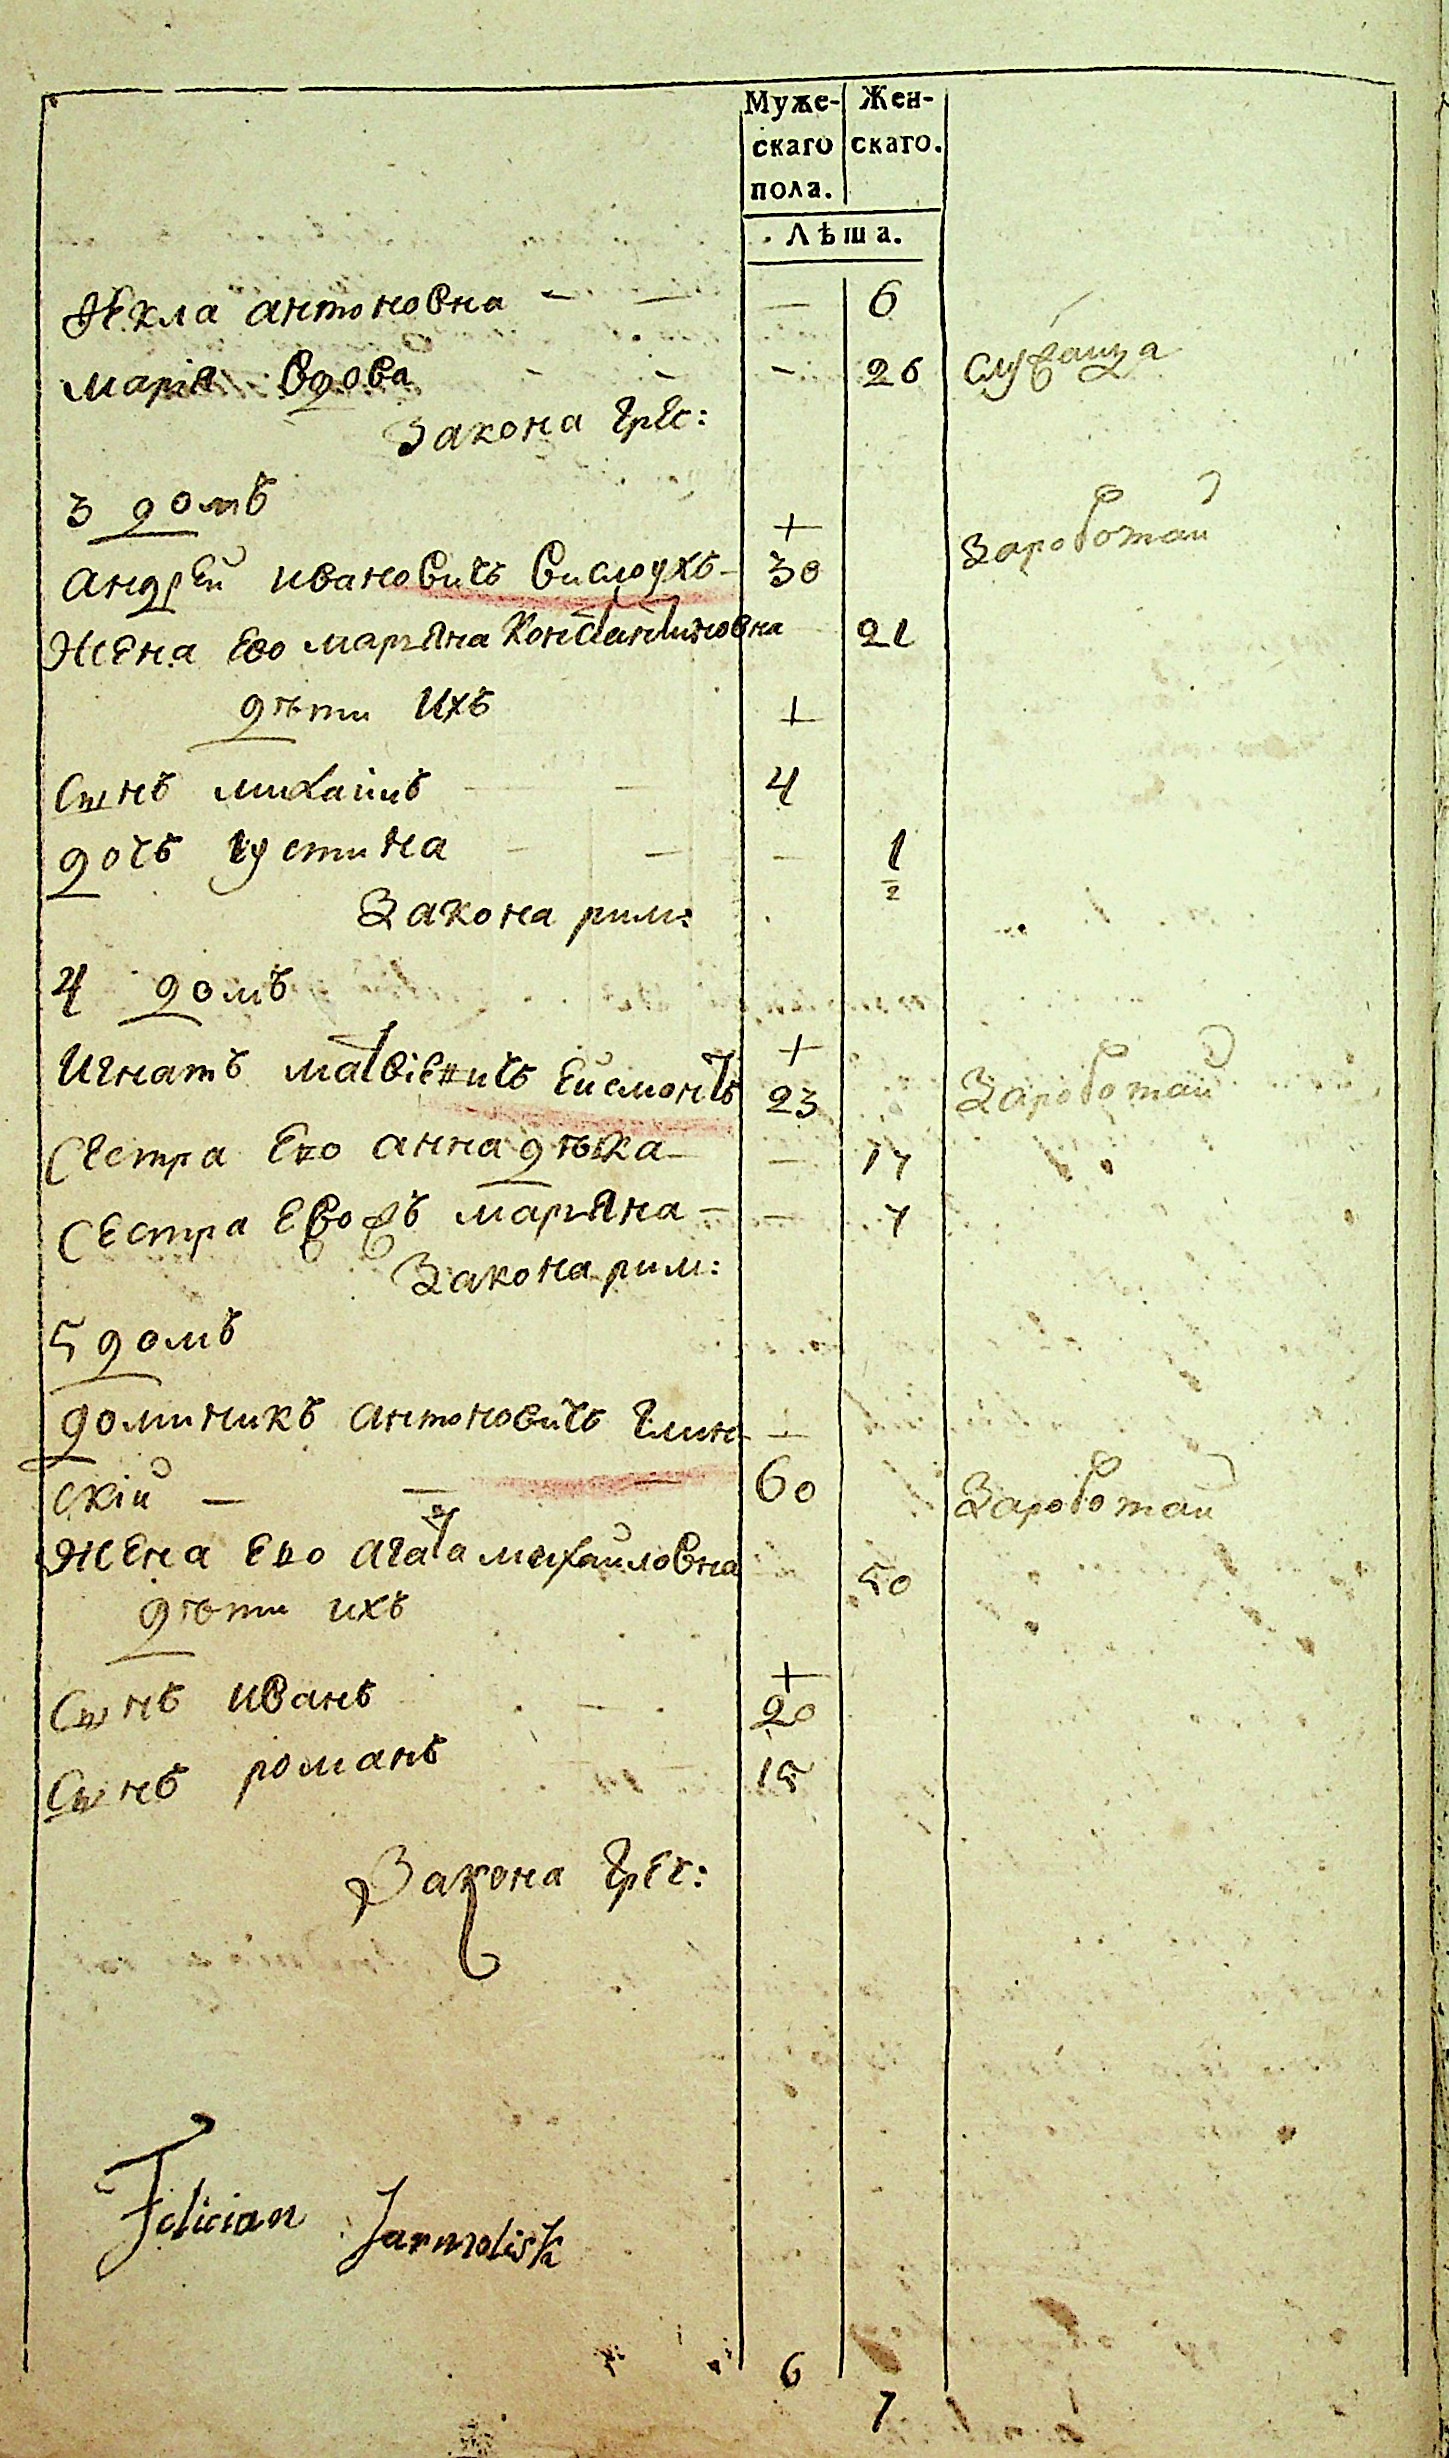 Муже- Жен-
скаго скаго.
пола.
Лѣта.
Текла антоновна - — — 6
марія вдова - - - 26 служаща
Закона грес:
3 домъ
+
андрей ивановичъ вислоухъ - 30 заработай
Жена Ево маръяна Константиновна 21
дѣти ихъ +
Сынъ михаилъ — — 4
дочъ юстина — — - 1/2
Закона рим:
4 домъ
+
Игнатъ матвіевичъ Еисмонтъ 23 Заработай
Сестра Ево анна дѣвка — — 17
Сестра Ево жъ маръяна — — 7
Закона рим:
5 домъ
доминикъ антоновичъ Глин- +
скій — — — 60 Заработай
Жена Ево агата михайловна 50
дѣти ихъ
+
Сынъ иванъ — 20
Сынъ романъ 15
Закона грес:
Felician Jarmolisk
6
7